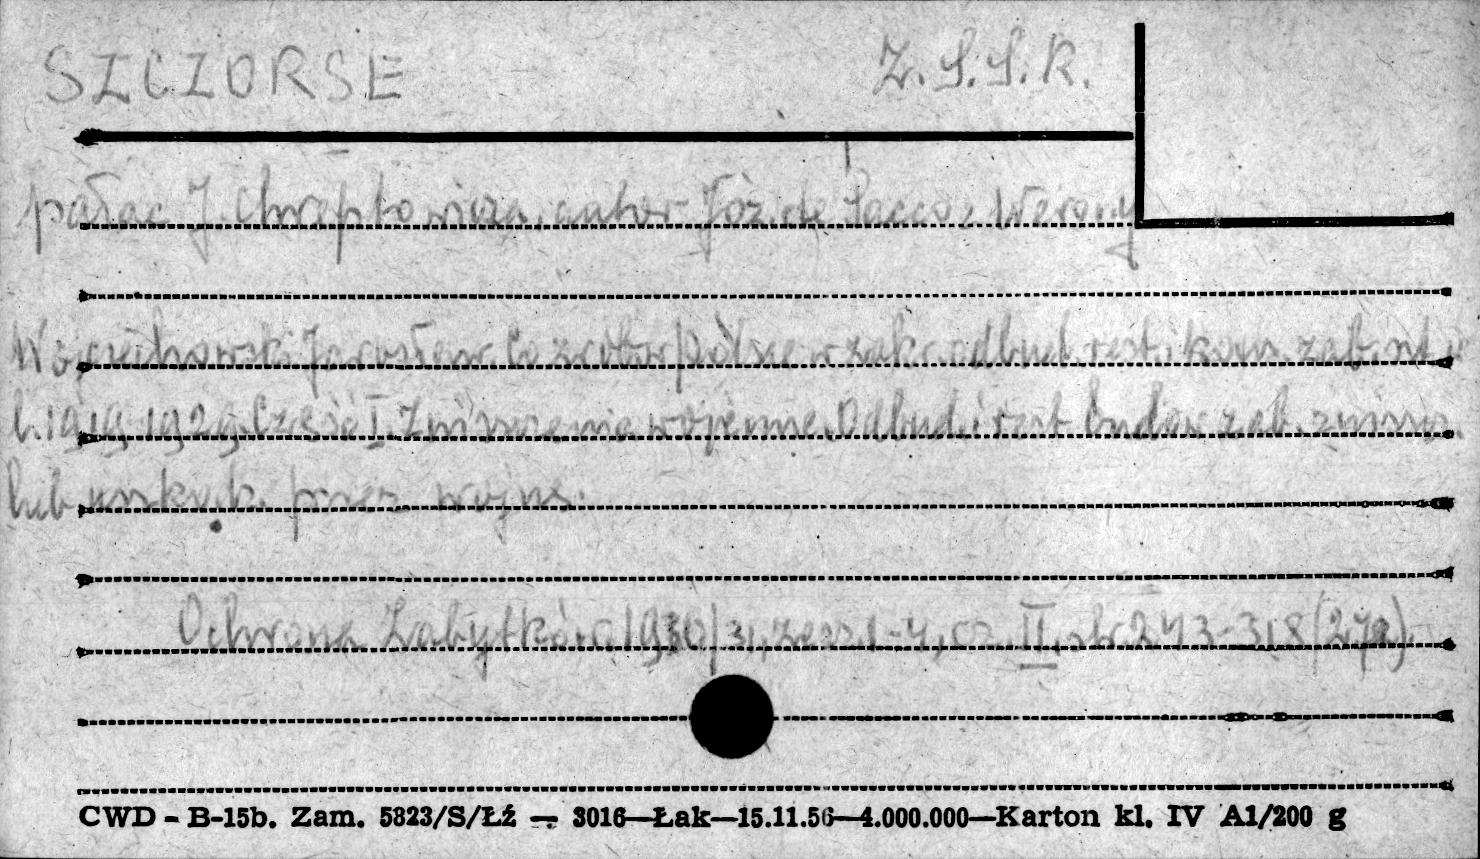 SZCZORSE Z.S.S.R.
pałac J. Chreptowicza, autor Józ. de Sacco z Werony
Wojciechowski Jarosław. Co zrobiw Polsce w zakr. odbud. rest. i kon. zab. szt.
l. 1919-1929. Część I. Zniszczenia wojenne. Odbud. i rest. budow. zab. zniszcz.
lub uszkodz. przez wojnę.
Ochrona Zabytków 1930/31, zesz. 1-4, cz. II, str. 243-318 (279).
CWD - B-15b. Zam. 5823/S/Łź — 3016—Łak—15.11.56—4.000.000—Karton kl. IV A1/200 g